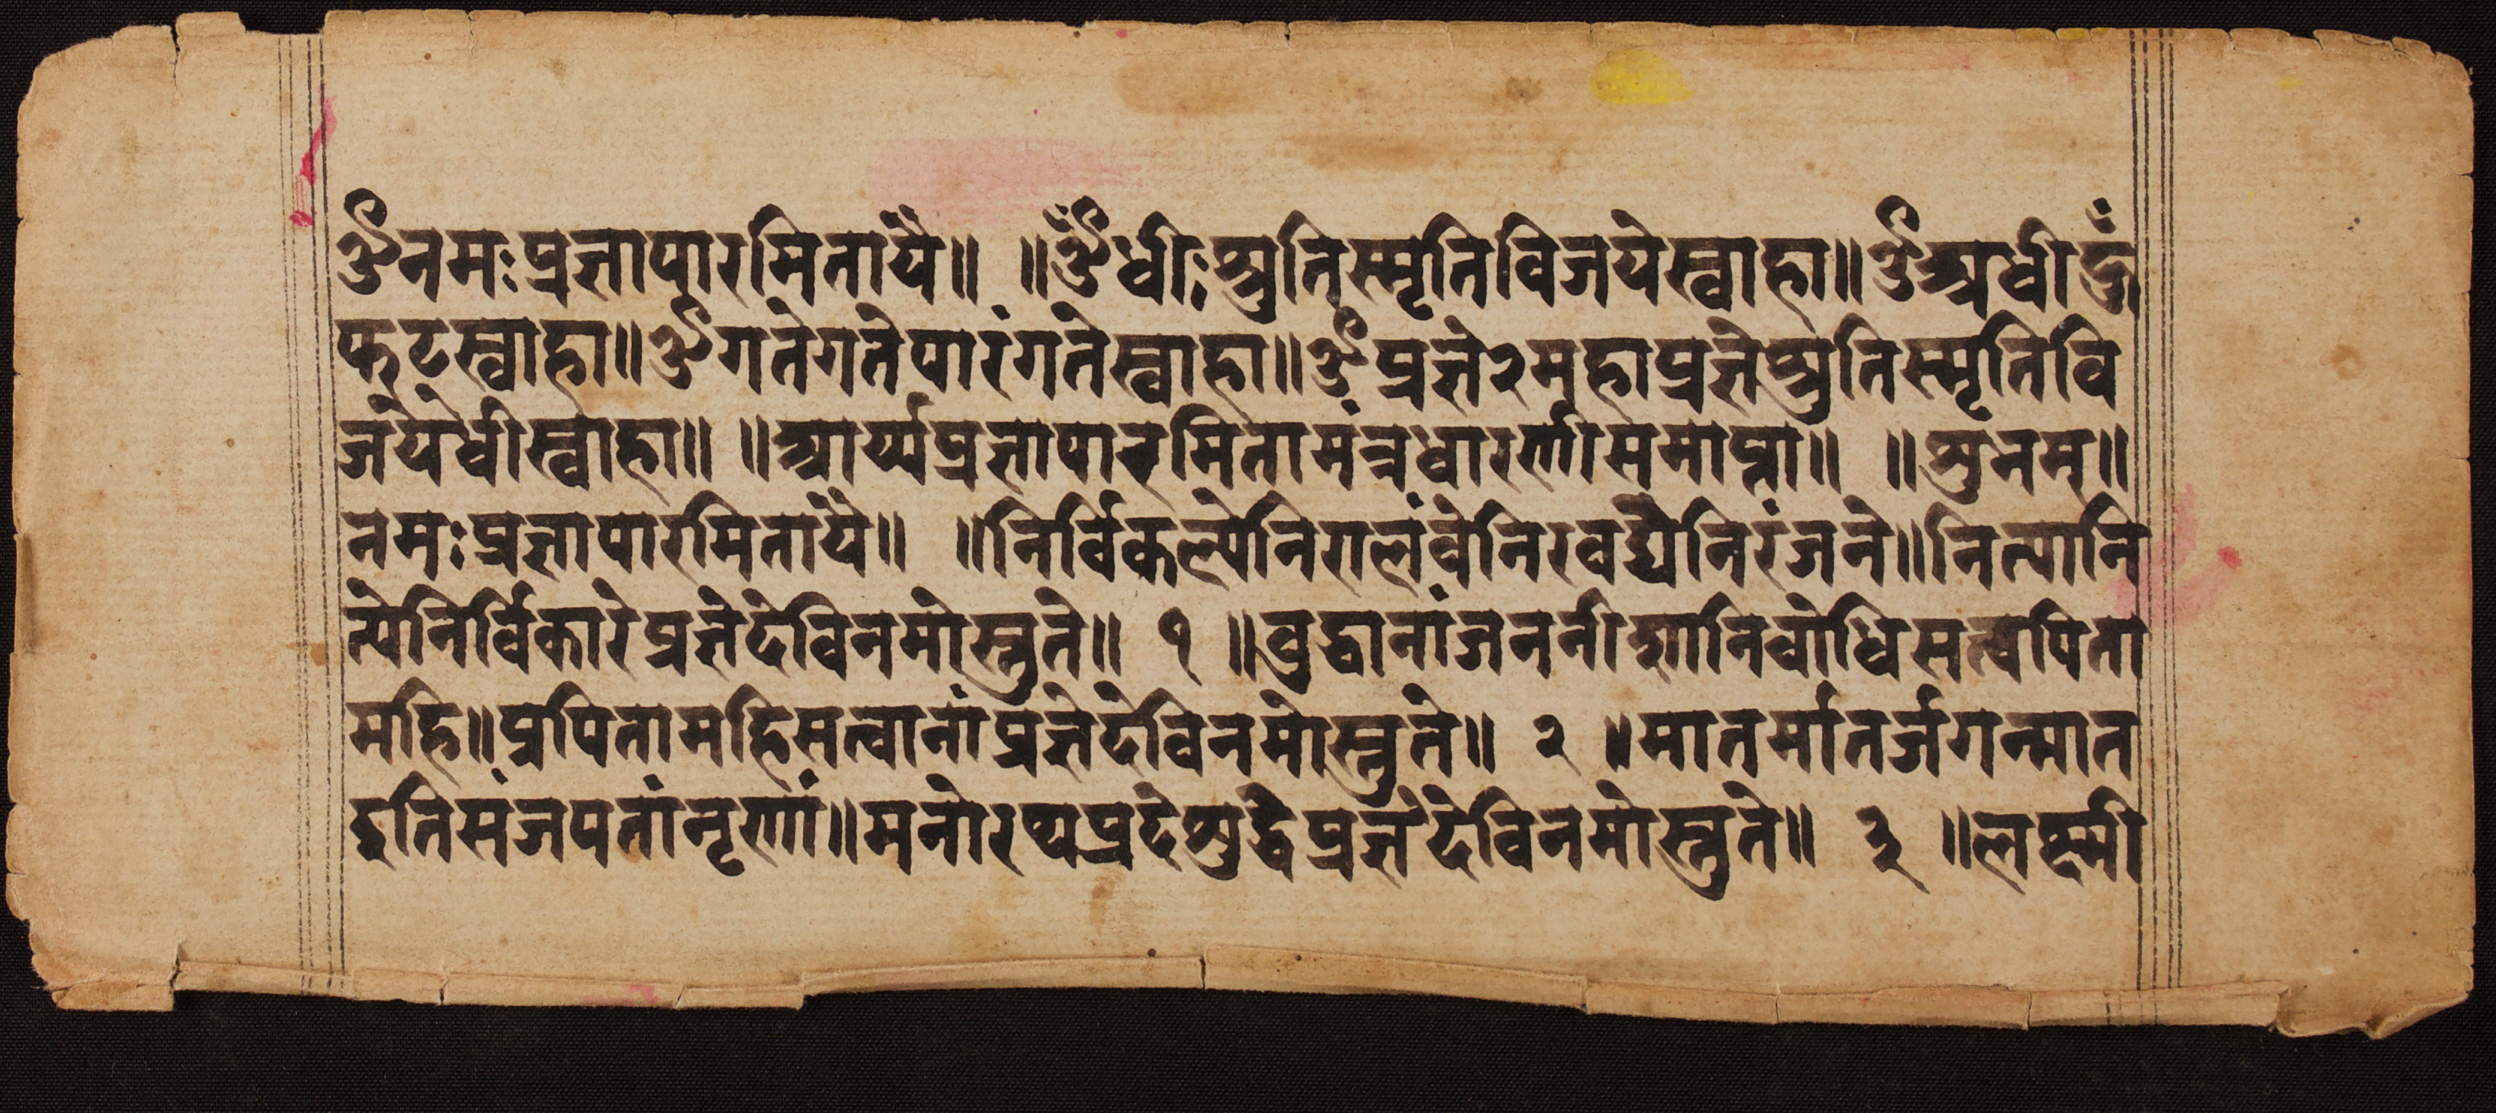 ॐनमःप्रज्ञापारमितायै॥ ॥ॐधीःश्रुतिस्मृतिविजयेस्वाहा॥ॐअधीहूँ
फट्स्वाहा॥ॐगतेगतेपारंगतेस्वाहा॥ॐप्रज्ञे२महाप्रज्ञेश्रुतिस्मृतिवि
जयेधीस्वाहा॥ ॥आर्य्यप्रज्ञापारमितामंत्रधारणीसमाप्ता॥ ॥शुनम्॥
नमःप्रज्ञापारमितायै॥ ॥निर्विकल्पेनिरालंवेनिरवद्यैनिरंजने॥नित्यानि
त्येनिर्विकारेप्रज्ञेदेविनमोस्तुते॥ १ ॥वुद्धानांजननीशानिवोधिसत्वपिता
महि॥प्रपितामहिसत्वानांप्रज्ञेदेविनमोस्तुते॥ २ ॥मातर्मातर्जगन्मात
इतिसंजपतांनृणां॥मनोरथप्रदेशुद्धेप्रज्ञेदेविनमोस्तुते॥ ३ ॥लक्ष्मी